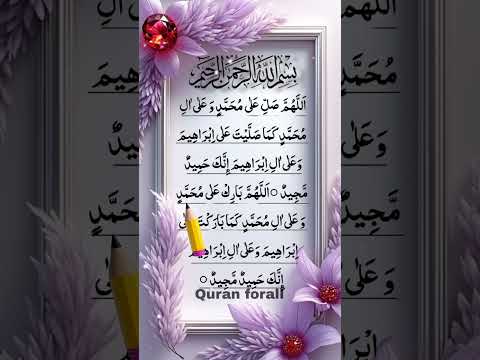 بِسْمِ اللهِ الرَّحْمٰنِ الرَّحِيْمِ
اَللّٰهُمَّ صَلِّ عَلٰى مُحَمَّدٍ وَّعَلٰٓى اٰلِ
مُحَمَّدٍ كَمَا صَلَّيْتَ عَلٰٓى اِبْرَاهِيْمَ
وَعَلٰٓى اٰلِ اِبْرَاهِيْمَ اِنَّكَ حَمِيْدٌ
مَّجِيْدٌ ○ اَللّٰهُمَّ بَارِكْ عَلٰى مُحَمَّدٍ
وَّعَلٰٓى اٰلِ مُحَمَّدٍ كَمَا بَارَكْتَ
اِبْرَاهِيْمَ وَعَلٰٓى اٰلِ اِبْرَاهِيْمَ
اِنَّكَ حَمِيْدٌ مَّجِيْدٌ ○
Quran forall